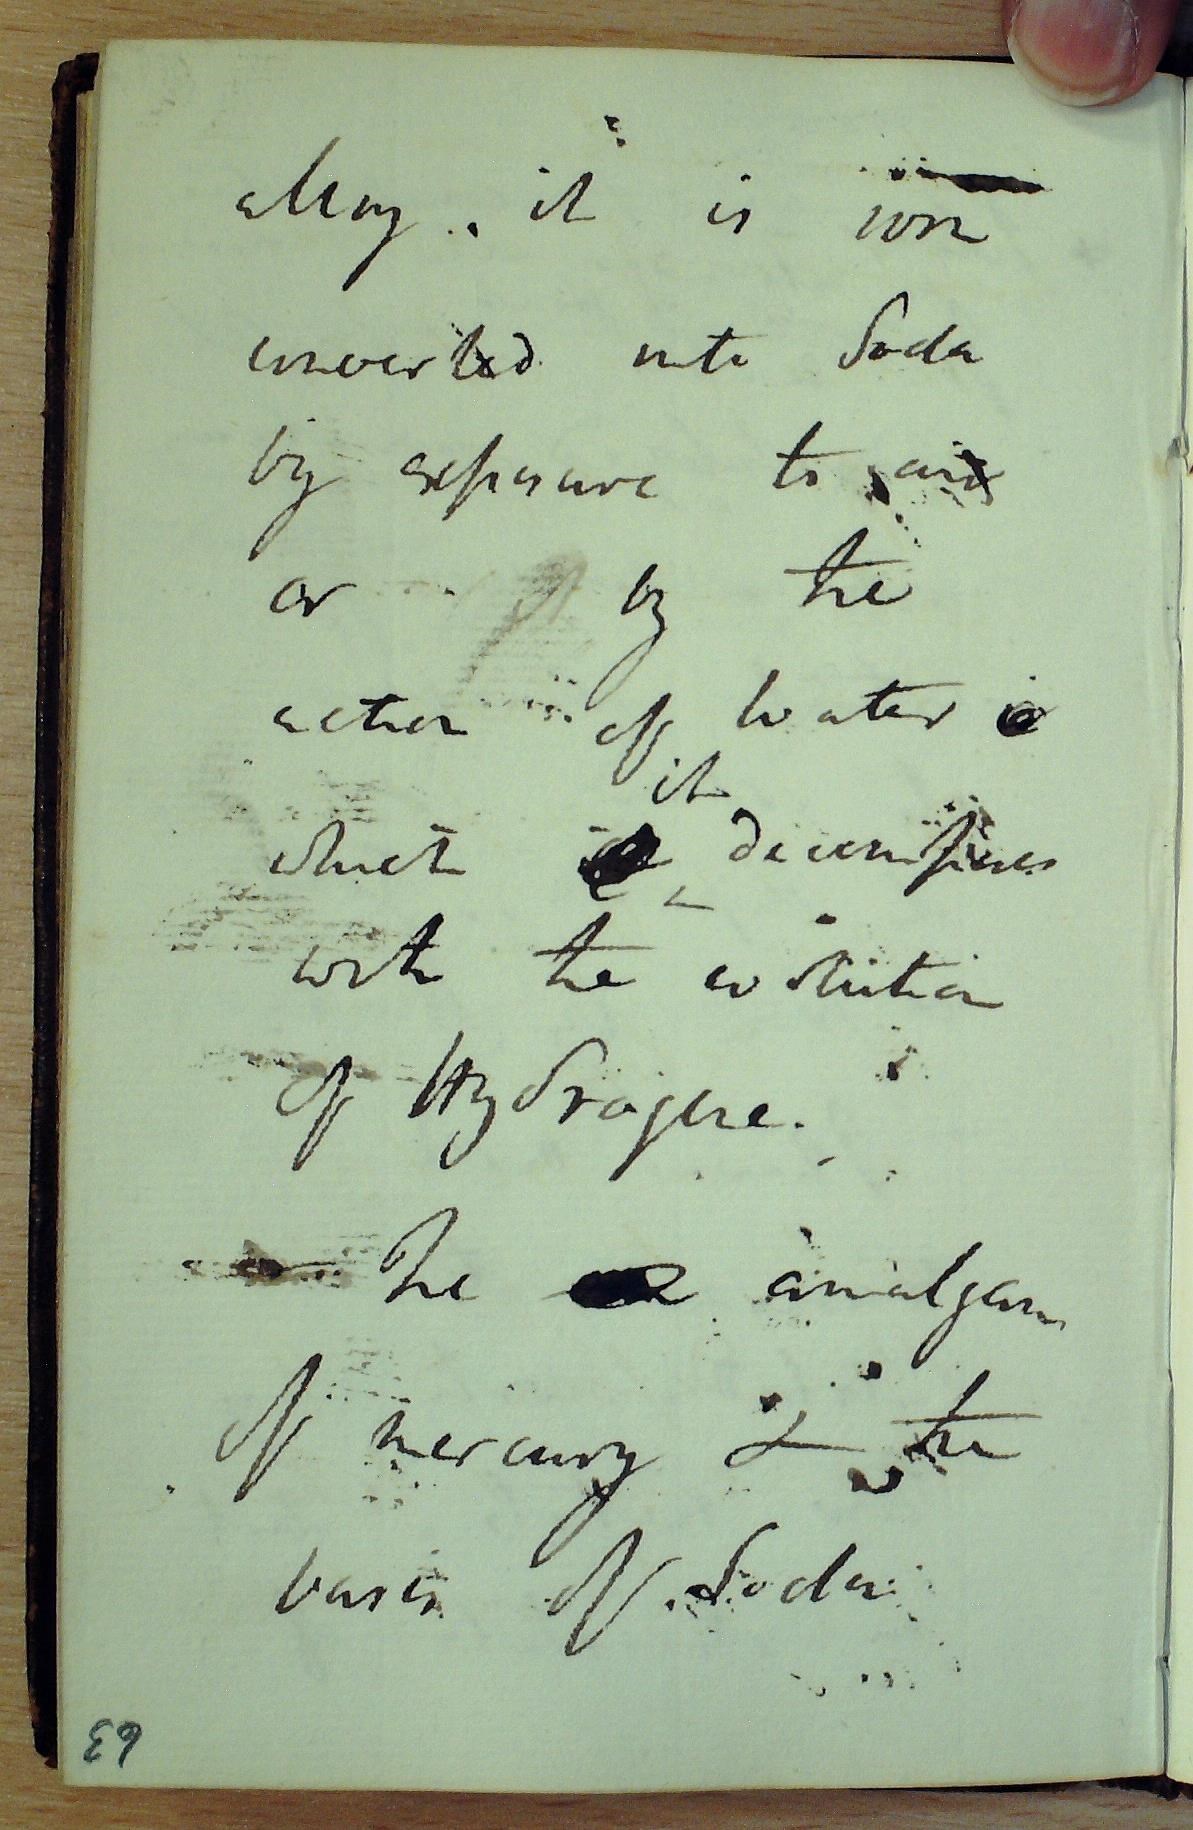 alloy. it is soon
converted into Soda
by exposure to air
or by the
action of Water
which it decomposes
with the evolution
of Hydrogene.
The amalgam
of mercury & the
basis of Soda
63